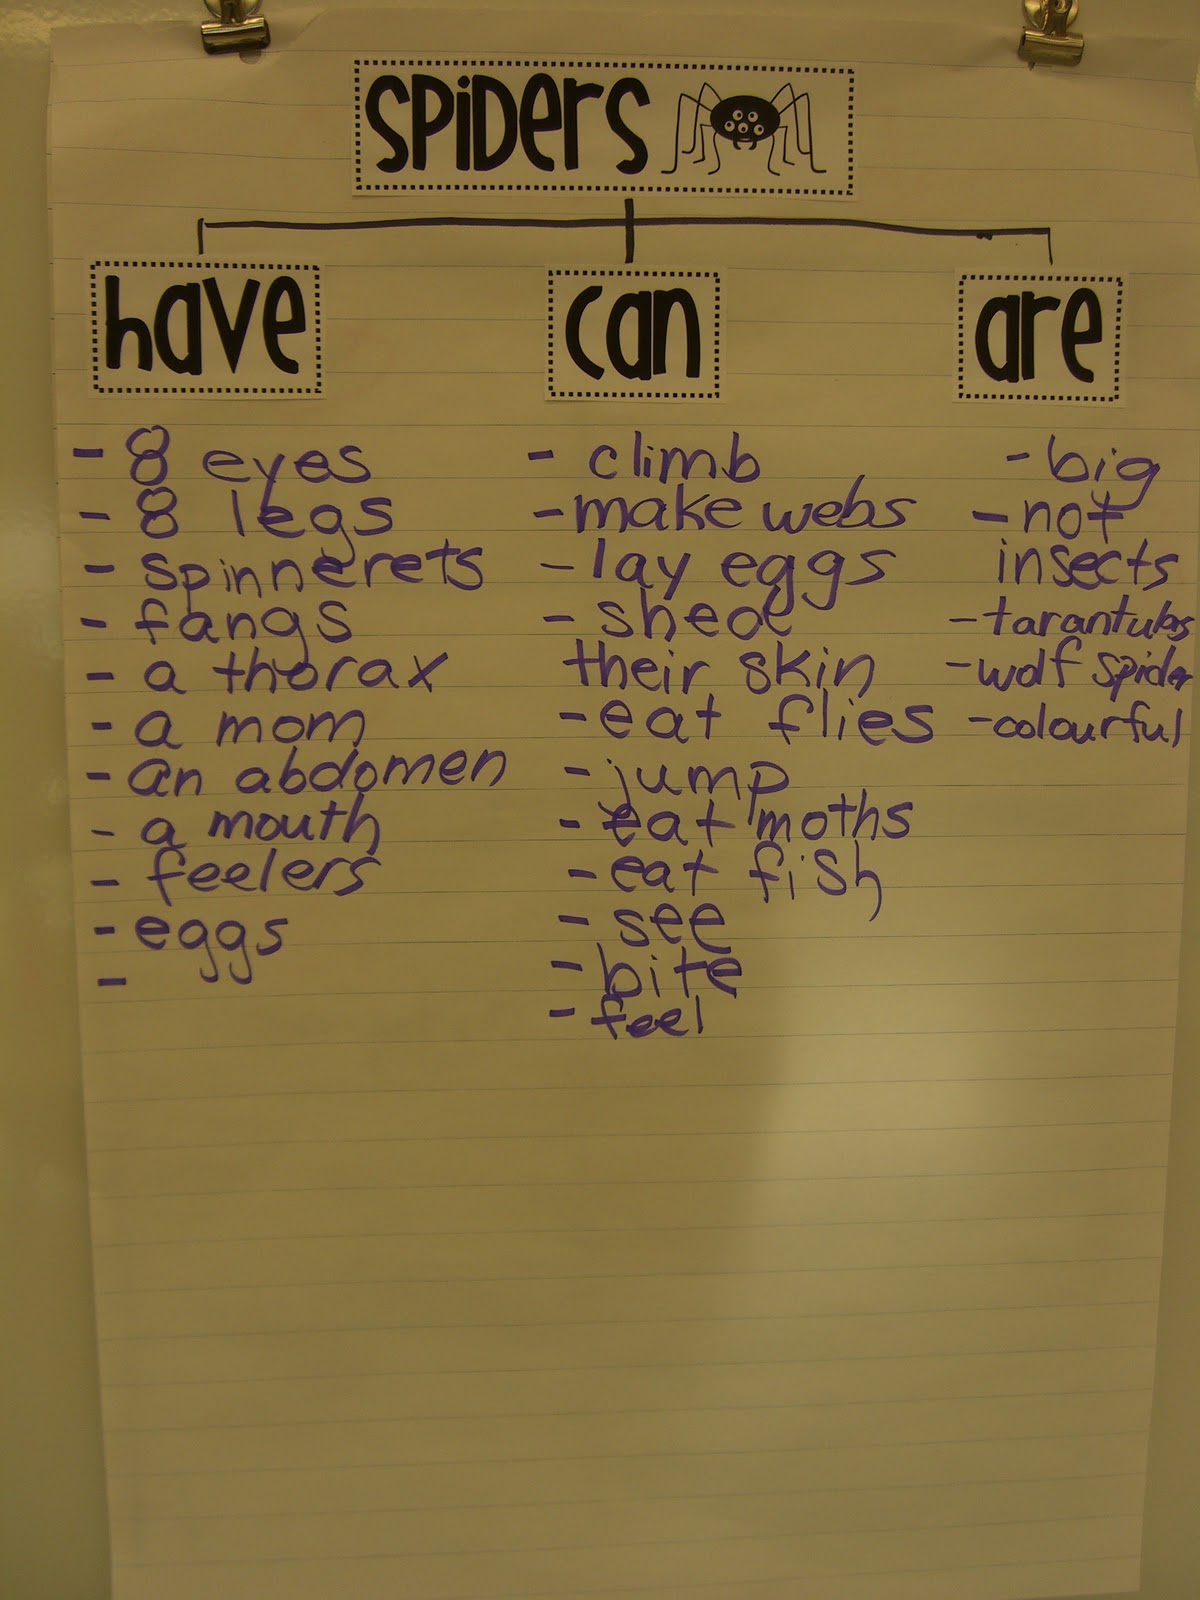 SPIDERS
have
can
are
- 8 eyes
- 8 legs
- spinnerets
- fangs
- a thorax
- a mom
- an abdomen
- a mouth
- feelers
- eggs
-
- climb
- make webs
- lay eggs
- shed
their skin
- eat flies
- jump
- eat moths
- eat fish
- see
- bite
- feel
- big
- not
insects
- tarantulas
- wolf spider
- colourful